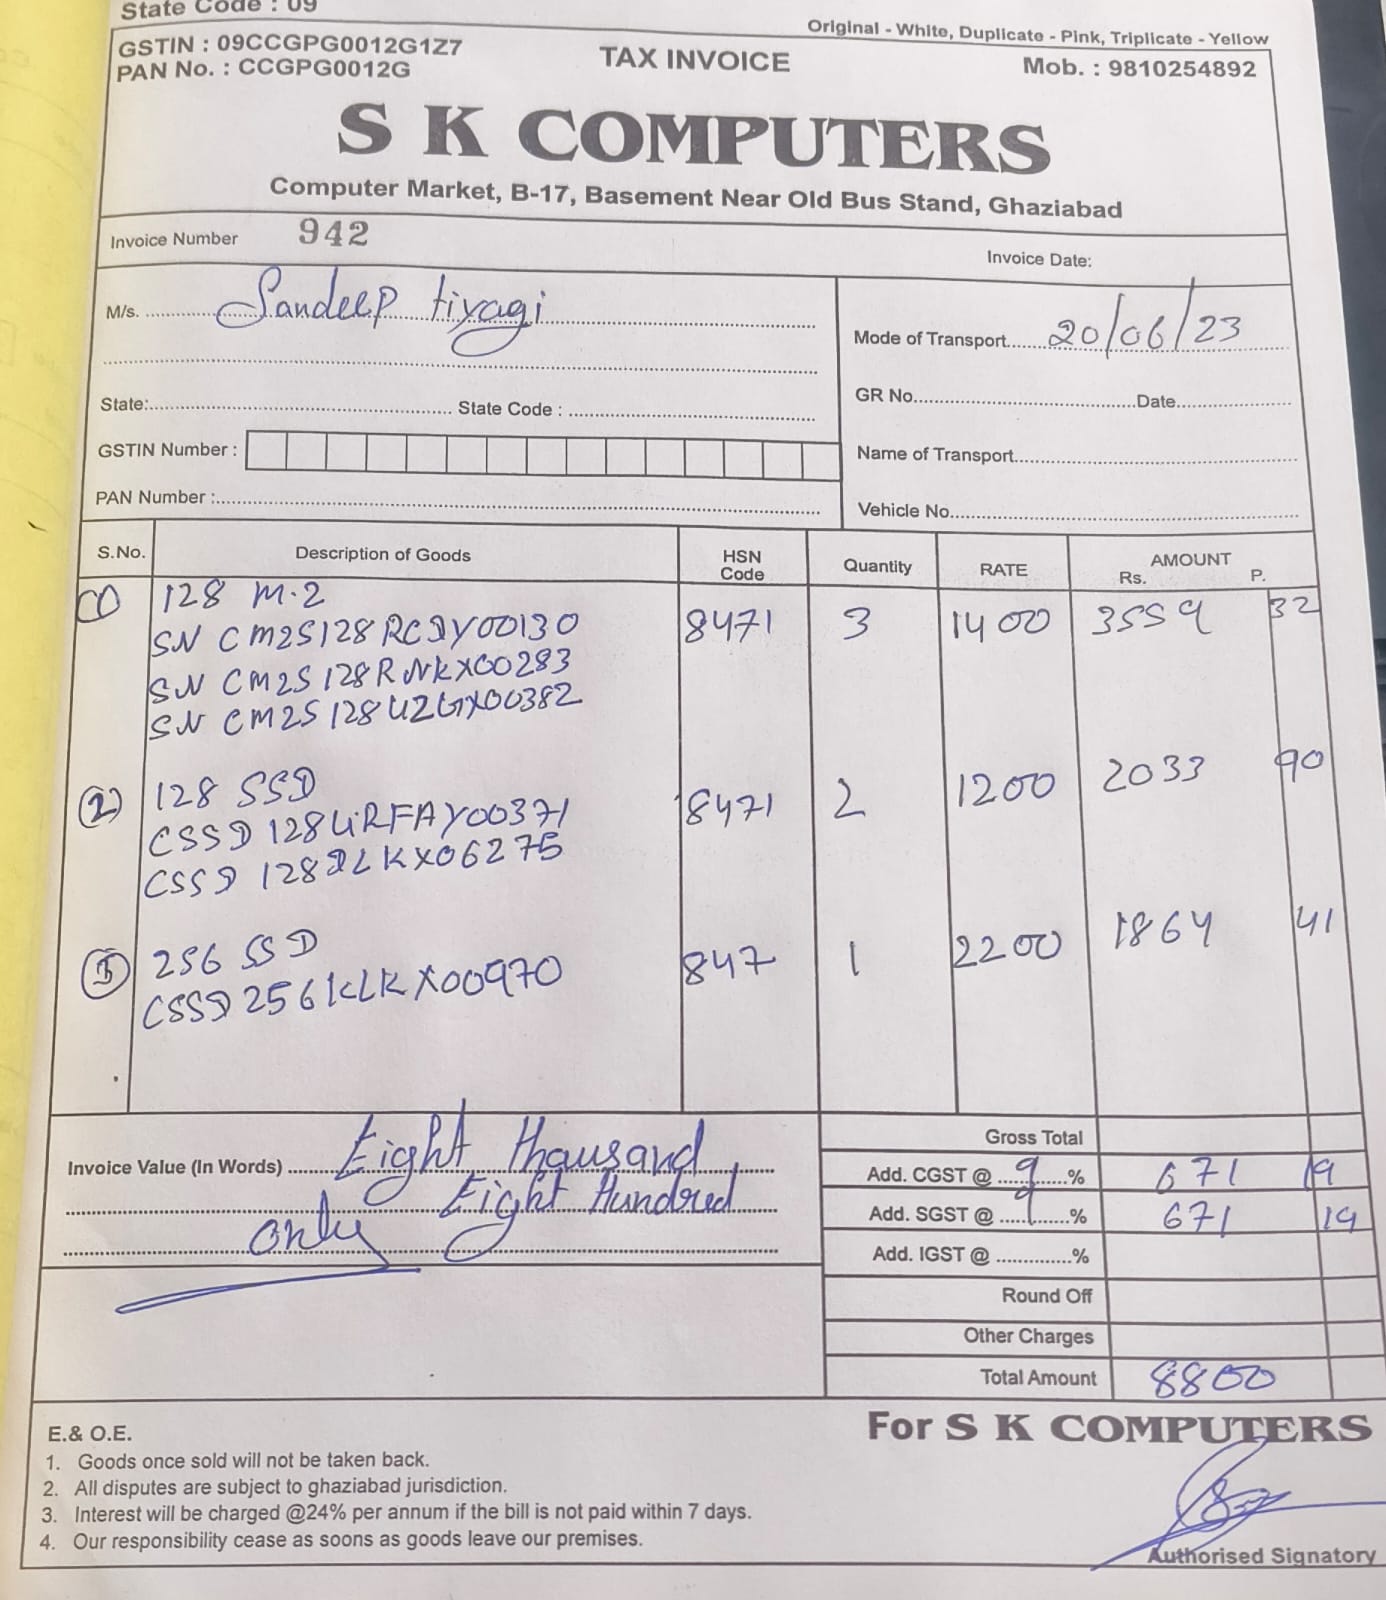 State Code : 09
Original - White, Duplicate - Pink, Triplicate - Yellow
GSTIN : 09CCGPG0012G1Z7
TAX INVOICE
Mob. : 9810254892
PAN No. : CCGPG0012G
S K COMPUTERS
Computer Market, B-17, Basement Near Old Bus Stand, Ghaziabad
Invoice Number 942
Invoice Date:
M/s. Sandeep tiyagi
Mode of Transport 20/06/23
State: State Code :
GR No. Date
GSTIN Number :
Name of Transport
PAN Number :
Vehicle No.
S.No. Description of Goods HSN Code Quantity RATE AMOUNT Rs. P.
(1) 128 M.2 8471 3 1400 3559 32
SN CM2S128RCJY00130
SN CM2S128RNKX00283
SN CM2S128UZGX00382
(2) 128 SSD 8471 2 1200 2033 90
CSSD128URFAY00371
CSSD128DLKX06275
(3) 256 SSD 847 1 2200 1864 41
CSSD256KLKX00970
Gross Total
Invoice Value (In Words) Eight thausand
Eight Hundred
only
Add. CGST @ 9 % 671 19
Add. SGST @ 9 % 671 19
Add. IGST @ %
Round Off
Other Charges
Total Amount 8800
E.& O.E.
For S K COMPUTERS
1. Goods once sold will not be taken back.
2. All disputes are subject to ghaziabad jurisdiction.
3. Interest will be charged @24% per annum if the bill is not paid within 7 days.
4. Our responsibility cease as soons as goods leave our premises.
Authorised Signatory